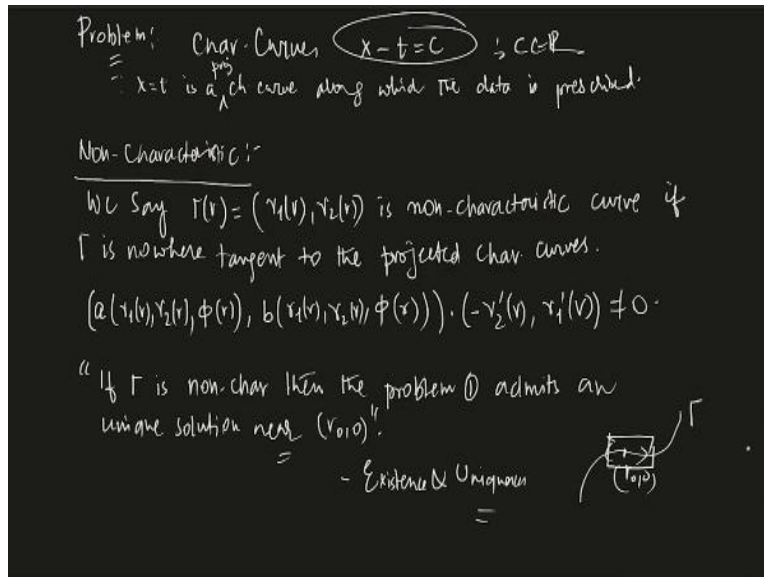 Problem: Char. Curves x - t = C ; C ∈ R
∵ x=t is a proj ch curve along which the data is prescribed.
Non-Characteristic:-
We say Γ(r) = (γ₁(r), γ₂(r)) is non-characteristic curve if
Γ is nowhere tangent to the projected char. curves.
(a(γ₁(r), γ₂(r), φ(r)), b(γ₁(r), γ₂(r), φ(r))) · (-γ₂'(r), γ₁'(r)) ≠ 0.
"If Γ is non-char then the problem ① admits an
unique solution near (r₀,0)".
- Existence & Uniqueness
Γ
(r₀,0)